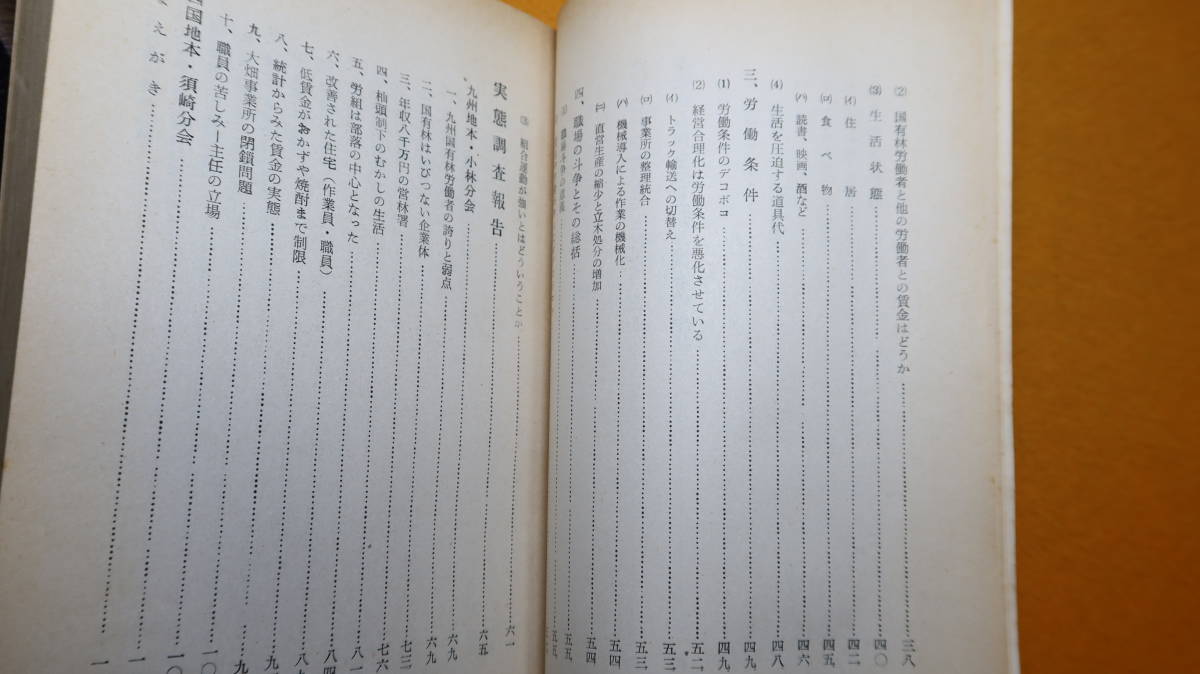 ⑵ 国有林労働者と他の労働者との賃金はどうか…………三八
⑶ 生活状態…………四〇
㈑ 住居…………四二
㈺ 食べ物…………四五
㈥ 読書、映画、酒など…………四六
⑷ 生活を圧迫する道具代…………四八
三、労働条件…………四九
⑴ 労働条件のデコボコ…………四九
⑵ 経営合理化は労働条件を悪化させている…………五二
(イ) トラック輸送への切替え…………五三
(ロ) 事業所の整理統合…………五三
(ハ) 機械導入による作業の機械化…………五四
(ニ) 直営生産の縮少と立木処分の増加…………五四
四、職場の斗争とその総括…………五五
職場斗争の…………五五
組合運動が強いとはどういうことか…………六一
実態調査報告…………六五
九州地本・小林分会
一、九州国有林労働者の誇りと弱点…………六九
二、国有林はいびつない企業体…………六九
三、年収八千万円の営林署…………七三
四、杣頭制下のむかしの生活…………七六
五、労組は部落の中心となった…………八一
六、改善された住宅（作業員・職員）…………八四
七、低賃金がおかずや焼酎まで制限…………八
八、統計からみた賃金の実態…………九
九、大畑事業所の閉鎖問題…………九
十、職員の苦しみー主任の立場…………一〇
国地本・須崎分会…………一〇
えがき…………一